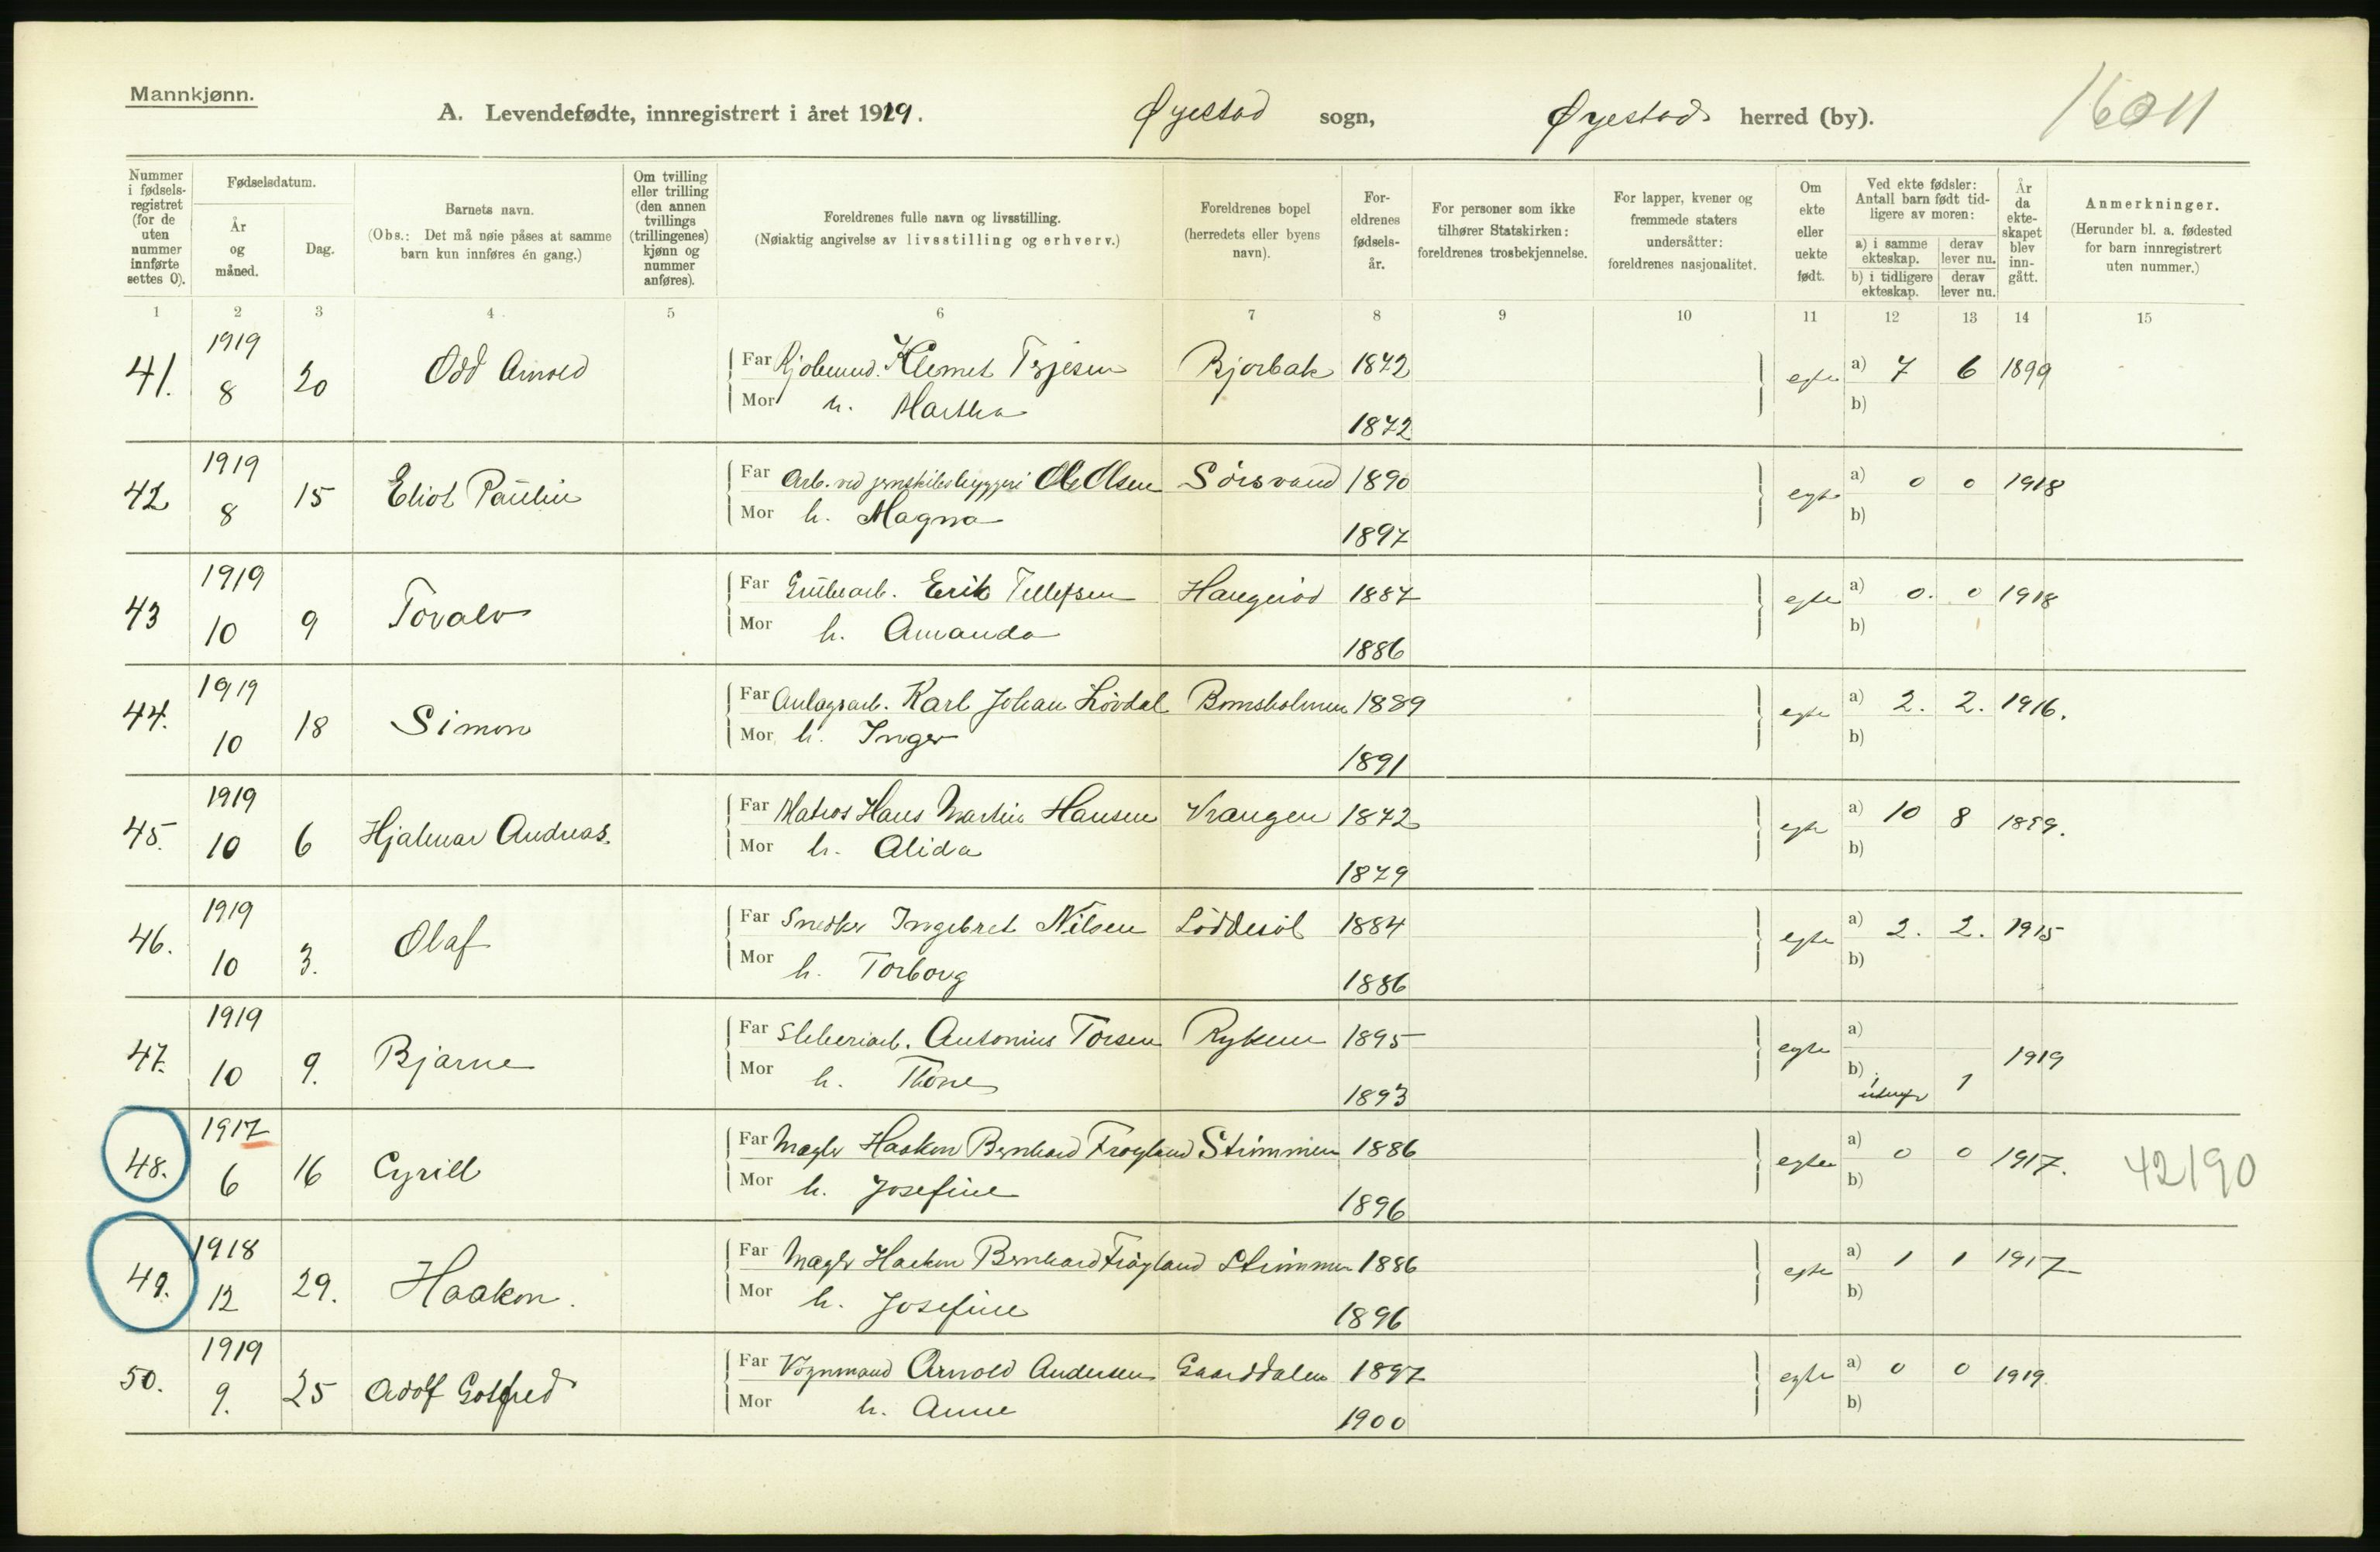 Mannkjønn.
A. Levendefødte, innregistrert i året 1919. Øyestad sogn, Øyestad herred (by). 16011
Nummer i fødsels-registret (for de uten nummer innførte settes 0).
Fødselsdatum.
År og måned.
Dag.
Barnets navn.
(Obs.: Det må nøie påses at samme barn kun innføres én gang.)
Om tvilling eller trilling (den annen tvillings (trillingenes) kjønn og nummer anføres).
Foreldrenes fulle navn og livsstilling.
(Nøiaktig angivelse av livsstilling og erhverv.)
Foreldrenes bopel (herredets eller byens navn).
For-eldrenes fødsels-år.
For personer som ikke tilhører Statskirken: foreldrenes trosbekjennelse.
For lapper, kvener og fremmede staters undersåtter: foreldrenes nasjonalitet.
Om ekte eller uekte født.
Ved ekte fødsler: Antall barn født tid-ligere av moren:
a) i samme ekteskap. derav lever nu.
b) i tidligere ekteskap. derav lever nu.
År da ekte-skapet blev inn-gått.
Anmerkninger.
(Herunder bl. a. fødested for barn innregistrert uten nummer.)
1 2 3 4 5 6 7 8 9 10 11 12 13 14 15
41. 1919 8 20 Odd Arnold Far Klemet Terjesen Bjorbak 1872 egte a) 7 6 1899
Mor h. Martha 1872 b)
42 1919 8 15 Eliot Paulin Far Arb. ved jernskibsbyggeri Ole Olsen Sørsvand 1890 egte a) 0 0 1918
Mor h. Magna 1897 b)
43 1919 10 9 Toralv Far Grubearb. Erik Tellefsen Haugerød 1887 egte a) 0. 0 1918
Mor h. Amanda 1886 b)
44. 1919 10 18 Simon Far Anlagsarb. Karl Johan Løvdal Bomsholmen 1889 egte a) 2. 2. 1916.
Mor h. Inger 1891 b)
45. 1919 10 6 Hjalmar Andreas. Far Matros Hans Martin Hansen Vrangen 1872 egte a) 10 8 1899.
Mor h. Alida 1879 b)
46. 1919 10 3. Olaf Far Snedker Ingebret Nilsen Løddesøl 1884 egte a) 2. 2. 1915
Mor h. Torborg 1886 b)
47. 1919 10 9. Bjarne Far Sliberiarb. Antonius Torsen Rykene 1895 egte a) 1919
Mor h. Thone 1893 b) 1 1
48. 1917 6 16 Cyrill Far Mægler Haakon Bernhard Frøyland Strømmen 1886 egte a) 0 0 1917. 42190
Mor h. Josefine 1896 b)
49. 1918 12 29. Haakon. Far Mægler Haakon Bernhard Frøyland Strømmen 1886 egte a) 1 1 1917
Mor h. Josefine 1896 b)
50. 1919 9. 25 Adolf Gotfred Far Vognmand Arnold Andersen Gaarddalen 1897 egte a) 0 0 1919.
Mor h. Anne 1900 b)